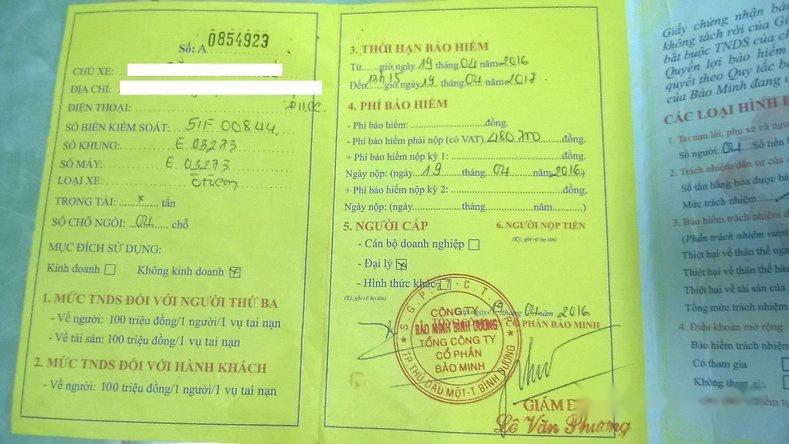 Số: A 0854923
CHỦ XE:
ĐỊA CHỈ:
ĐIỆN THOẠI:
SỐ BIỂN KIỂM SOÁT: 51F 00844
SỐ KHUNG: E 03273
SỐ MÁY: E 03273
LOẠI XE: Ôtô con
TRỌNG TẢI: x tấn
SỐ CHỖ NGỒI: 04 chỗ
MỤC ĐÍCH SỬ DỤNG:
Kinh doanh Không kinh doanh
1. MỨC TNDS ĐỐI VỚI NGƯỜI THỨ BA
- Về người: 100 triệu đồng/1 người/1 vụ tai nạn
- Về tài sản: 100 triệu đồng/1 vụ tai nạn
2. MỨC TNDS ĐỐI VỚI HÀNH KHÁCH
- Về người: 100 triệu đồng/1 người/1 vụ tai nạn
3. THỜI HẠN BẢO HIỂM
Từ......giờ,ngày 19 tháng 04 năm 2016
Đến 13h15 giờ,ngày 19 tháng 04 năm 2017
4. PHÍ BẢO HIỂM
- Phí bảo hiểm:..............................đồng.
- Phí bảo hiểm phải nộp (có VAT) 480 700 đồng.
+ Phí bảo hiểm nộp kỳ 1:..............................đồng.
Ngày nộp: (ngày 19 tháng 04 năm 2016)
+ Phí bảo hiểm nộp kỳ 2:..............................đồng.
Ngày nộp: (ngày...............tháng...............năm...............)
5. NGƯỜI CẤP
6. NGƯỜI NỘP TIỀN
(Ký, ghi rõ họ tên)
- Cán bộ doanh nghiệp
- Đại lý
- Hình thức khác
(Ký, ghi rõ họ tên)
Cấp ngày 19 tháng 04 năm 2016
CÔNG TY
BẢO MINH BÌNH DƯƠNG
TỔNG CÔNG TY
CỔ PHẦN
BẢO MINH
TP THỦ DẦU MỘT-T BÌNH DƯƠNG
CỔ PHẦN BẢO MINH
GIÁM Đ
Lê Văn Phương
Giấy chứng nhận bả
không tách rời của Gi
bắt buộc TNDS của ch
Quyền lợi bảo hiểm
quyết theo Quy tắc b
của Bảo Minh đang c
CÁC LOẠI HÌNH B
1. Tai nạn lái, phụ xe và ngư
Số người: 04 Số tiền
2. Trách nhiệm dân sự của c
Số tấn hàng hóa được bả
Mức trách nhiệm
3. Bảo hiểm trách nhiệm d
(Phần trách nhiệm vượt
Thiệt hại về thân thể ng
Thiệt hại về thân thể hà
Thiệt hại về tài sản của
Tổng mức trách nhiệm
4. Điều khoản mở rộng:
Bảo hiểm trách nhiệm
Có tham gia
Không tham gia